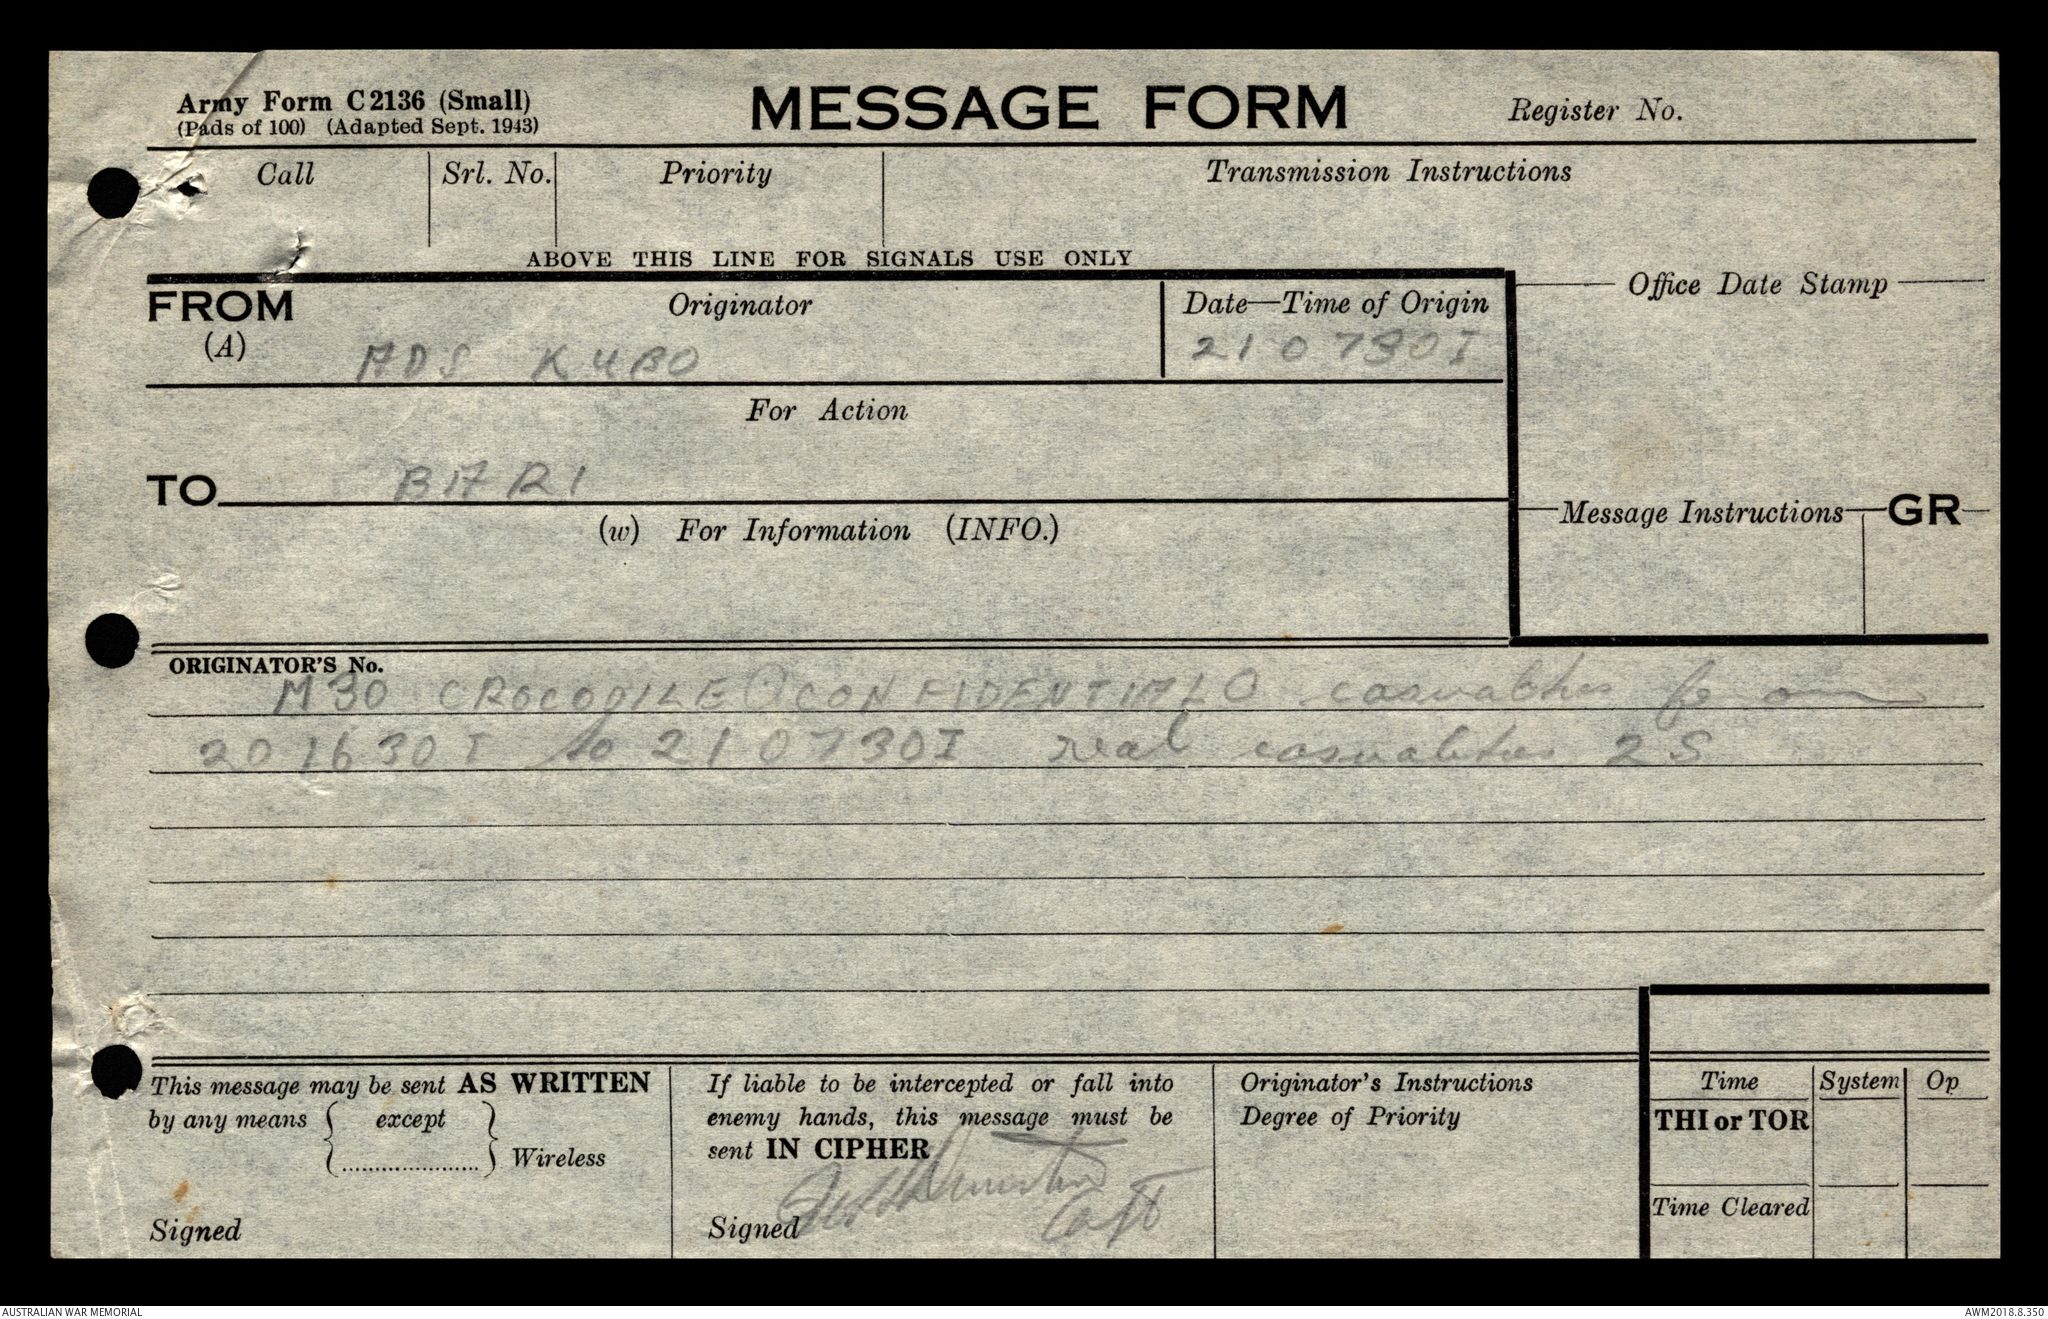 Army Form C2136 (Small)
(Pads of 100) (Adapted Sept. 1943)
MESSAGE FORM
Register No.
Call
Srl. No.
Priority
Transmission Instructions
ABOVE THIS LINE FOR SIGNALS USE ONLY
FROM
(A)
Originator
ADS KUBO
Date—Time of Origin
210730I
Office Date Stamp
For Action
TO
BARI
(w) For Information (INFO.)
Message Instructions
GR
ORIGINATOR'S No.
M30 CROCODILE O CONFIDENTIAL O casualties from
201630I to 210730I real casualties 2S
This message may be sent AS WRITTEN
by any means { except }
{......................} Wireless
Signed
If liable to be intercepted or fall into
enemy hands, this message must be
sent IN CIPHER
Signed
Capt
Originator's Instructions
Degree of Priority
Time
System
Op
THI or TOR
Time Cleared
AUSTRALIAN WAR MEMORIAL
AWM2018.8.350